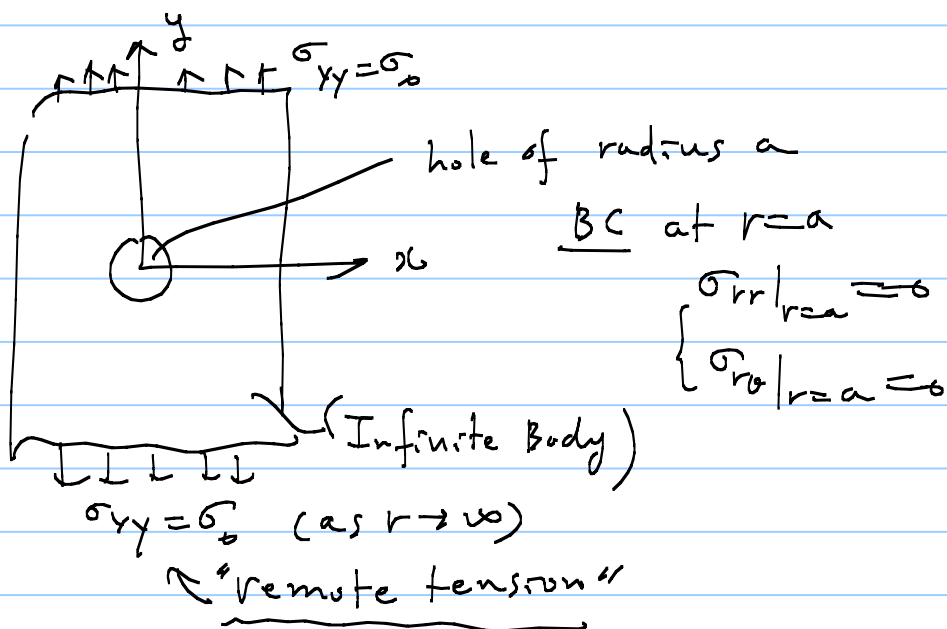 y
σ_yy = σ_o
hole of radius a
BC at r=a
x
σ_rr|_r=a = 0
σ_rθ|_r=a = 0
(Infinite Body)
σ_yy = σ_o (as r → ∞)
"remote tension"